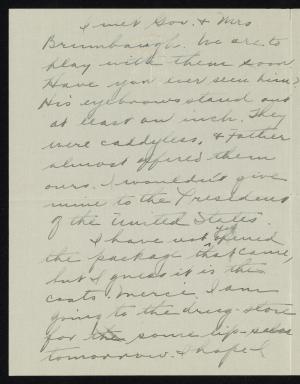 I met Gov. & Mrs
Brumbaugh. We are to
play with them soon.
Have you ever seen him?
His eyebrows stand out
at least an inch. They
were caddyless, & Father
almost offered them
ours. I wouldn't give
mine to the President
of the United States.
I have not yet opened
the package that came,
but I guess it is the
coats. Merci. I am
going to the drug-store
for the some lip-salve
tomorrow. I hope I